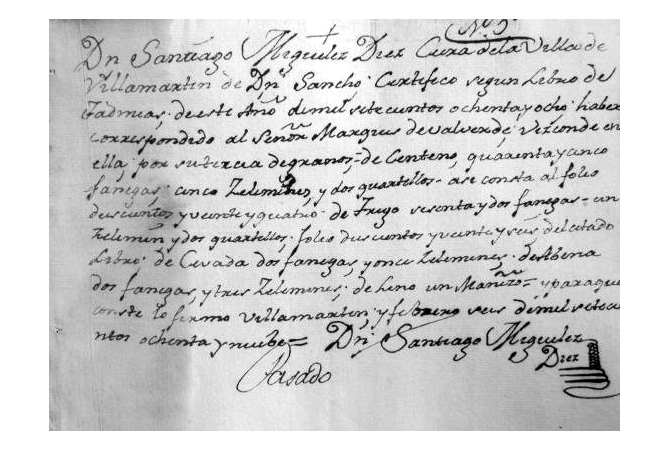 Nº 5
Dn Santiago Miguelez Diez Cura de la Villa de
Villamartin de Dn Sancho. Certifico segun Libro de
Tadmias, de este Año de mil setecientos ochenta y ocho haber
correspondido al Señor Marques de Valverde, Vizconde en
ella, por su tercia de granos, = de Centeno, quarenta y cinco
fanegas, cinco Zelemines, y dos quartellos = asi consta al folio
duscientos y veinte y quatro. de Trigo sesenta y dos fanegas = un
Zelemin y dos quartellos. folio duscientos y veinte y seis del citado
Libro. de Cevada dos fanegas, y once Zelemines. de Abena
dos fanegas, y tres Zelemines. de Lino un Mañizo = y para que
conste lo firmo Villamartin, y febrero seis de mil setecie
ntos ochenta y nuebe = Dn Santiago Miguelez
Diez
Pasado